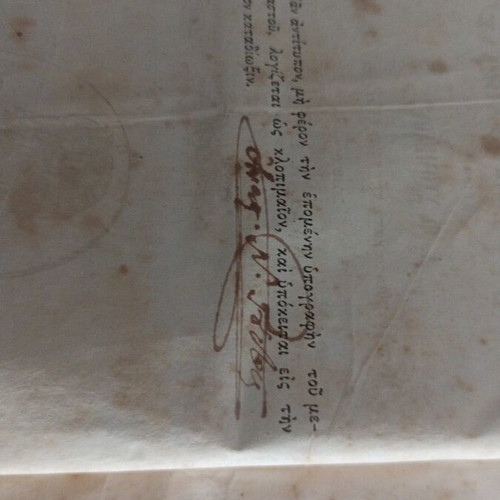 ᾶν ἀντίτυπον, μὴ φέρον τὴν ἑπομένην ὑπογραφὴν τοῦ με-
αστοῦ, λογίζεται ὡς κλοπιμαῖον, καὶ ὑπόκειται εἰς τὴν
ον καταδίωξιν.